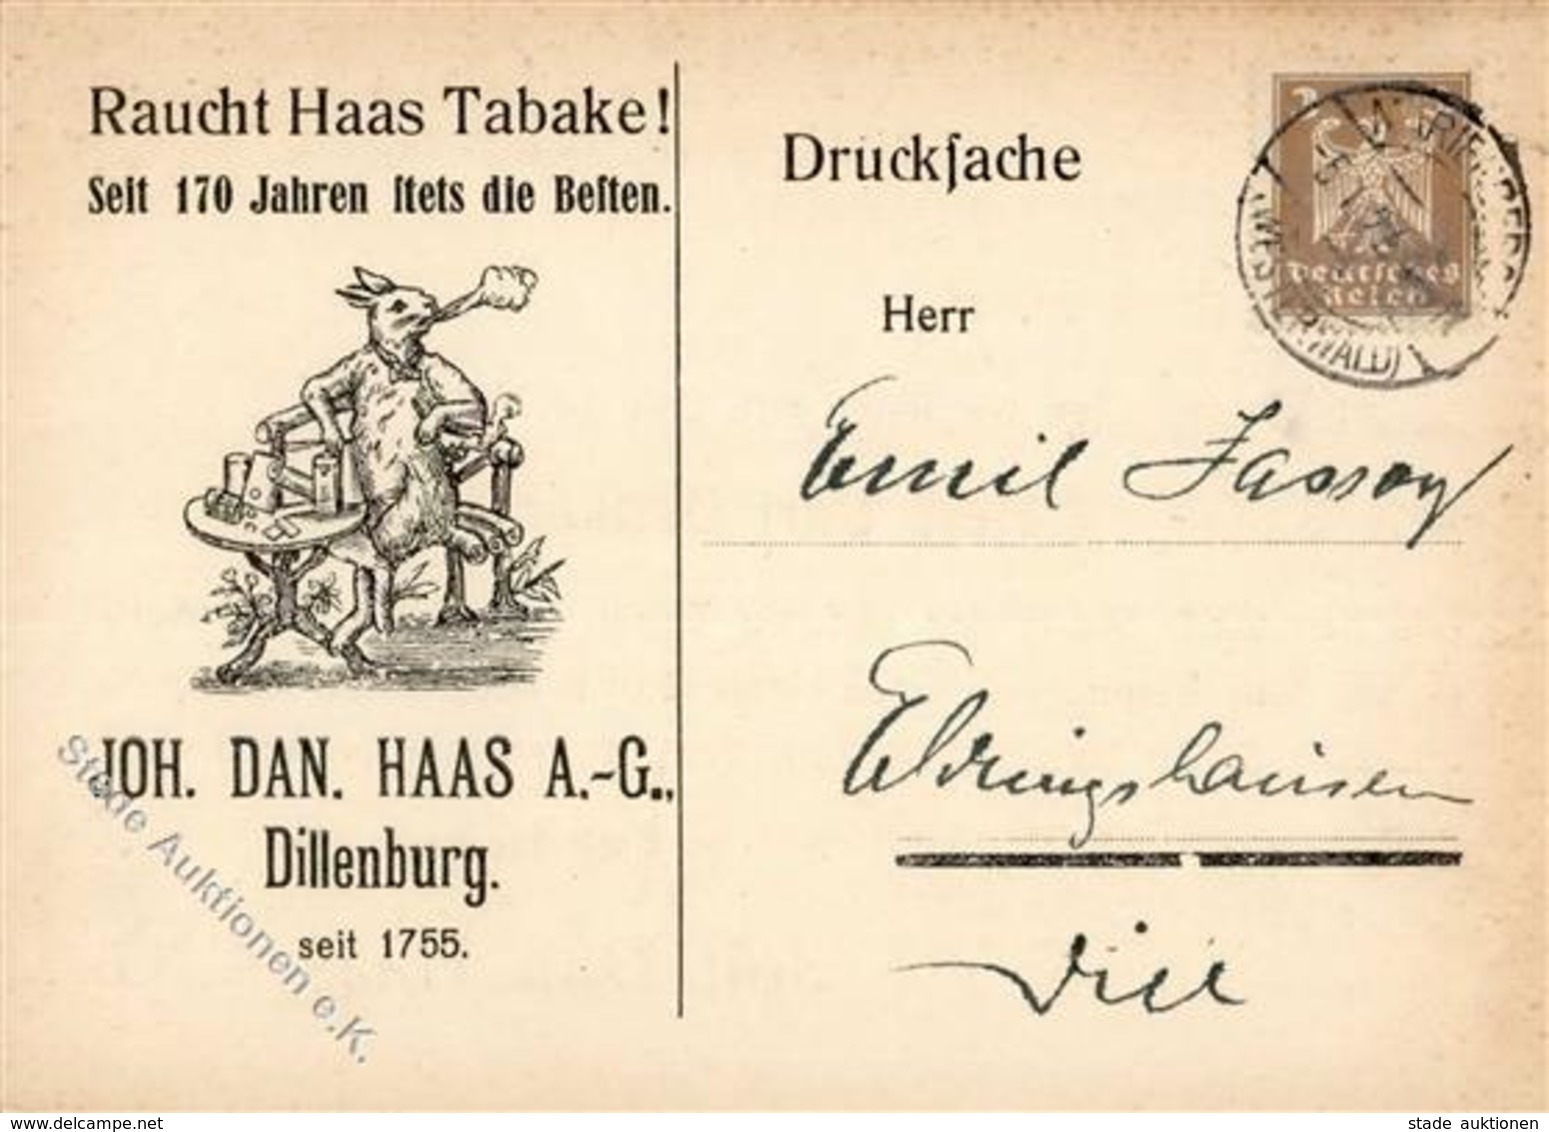 Raucht Haas Tabake!
Seit 170 Jahren ſtets die Beſten.
JOH. DAN. HAAS A.-G.,
Dillenburg.
seit 1755.
Druckſache
Herr
3
Deutſches
Reich
MARIENBERG
(WESTERWALD)
Emil Jassoy
Edingshausen
Dill
Stade Auktionen e.K.
www.delcampe.net
stade auktionen